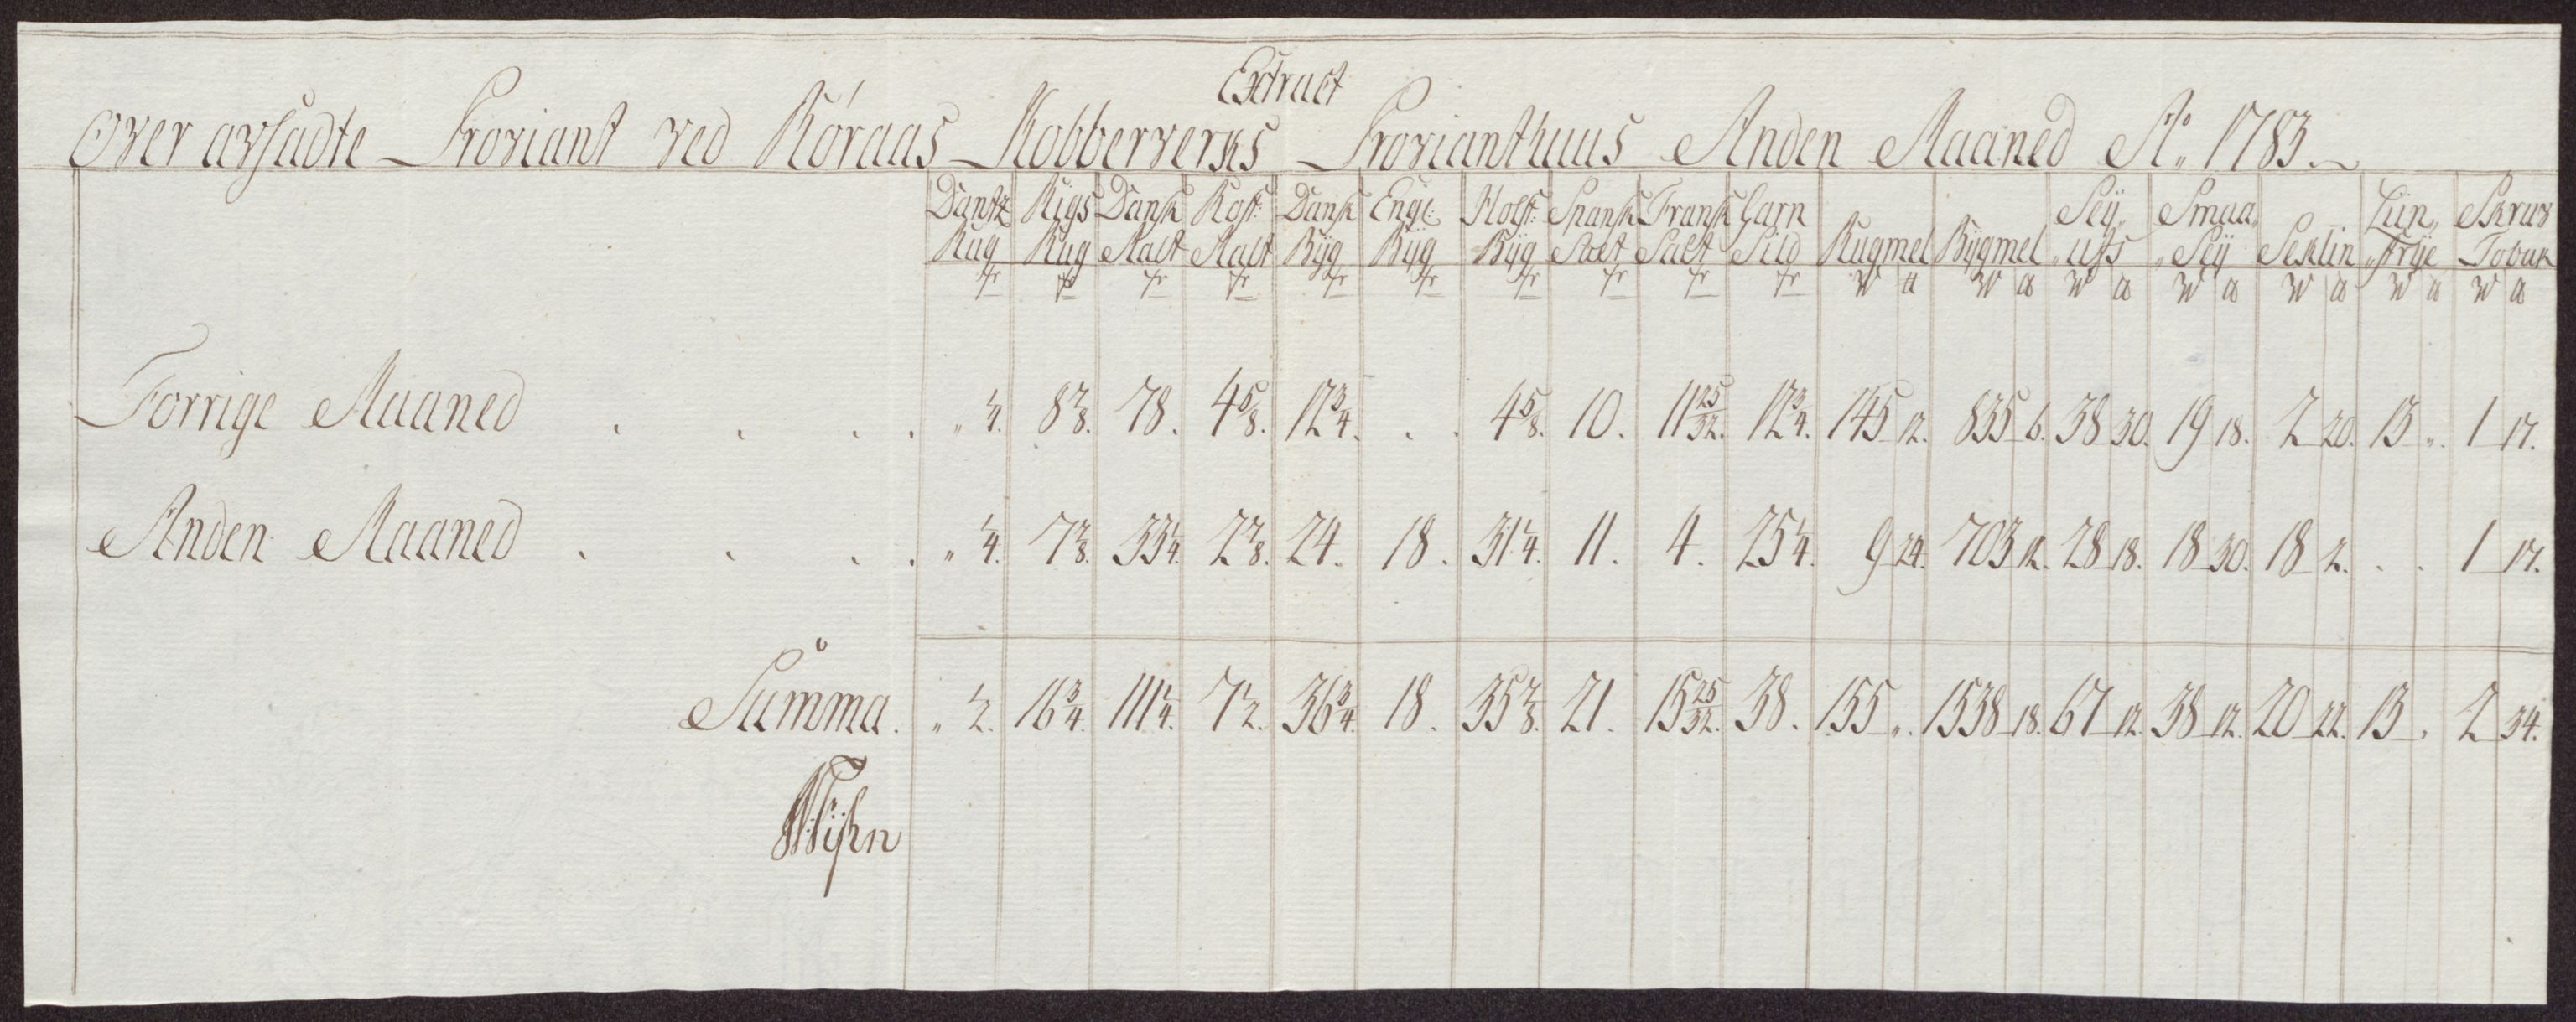 Extract
Over avsadte Proviant ved Röraas Kobberverks Provianthuus Anden Maaned Aº 1783.
Dantz Rug Rigs Rug Dansk Malt Rost: Malt Dansk Byg Engl: Byg Holst: Byg Spansk Salt Fransk Salt Garn Sild Rugmel Bÿgmel Seÿ, ufs Smaa, Seÿ Seklin Liin, Frÿe Skruv Tobak
Forrige Maaned . . . . „ 1/4. 8 7/8. 78. 4 5/8. 12 3/4. . . 4 5/8. 10. 11 25/32. 12 3/4. 145 12. 835 6. 38 30. 19 18. 2 20. 13 „. 1 17.
Anden Maaned . . . . „ 1/4. 7 7/8. 33 1/4. 2 7/8. 24. 18. 31 1/4. 11. 4. 25 1/4. 9 24. 703 12. 28 18. 18 30. 18 2. . . 1 17.
Summa. „ 1/2. 16 3/4. 111 1/4. 7 1/2. 36 3/4. 18. 35 7/8. 21. 15 25/32. 38. 155 „. 1538 18. 67 12. 38 12. 20 22. 13 . 2 34.